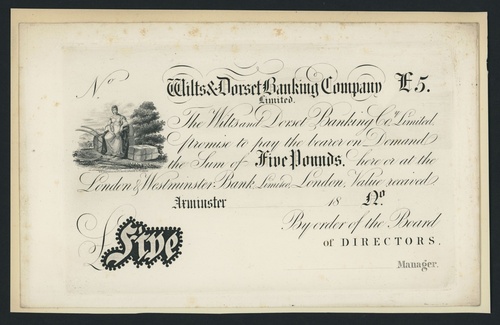 No Wilts & Dorset Banking Company £5.
Limited.
The Wilts and Dorset Banking Coy. Limited
promise to pay the bearer on Demand
the Sum of Five Pounds, here or at the
London & Westminster Bank, Limited, London, Value received
Axminster 18 No
By order of the Board
of DIRECTORS.
£ Five
Manager.